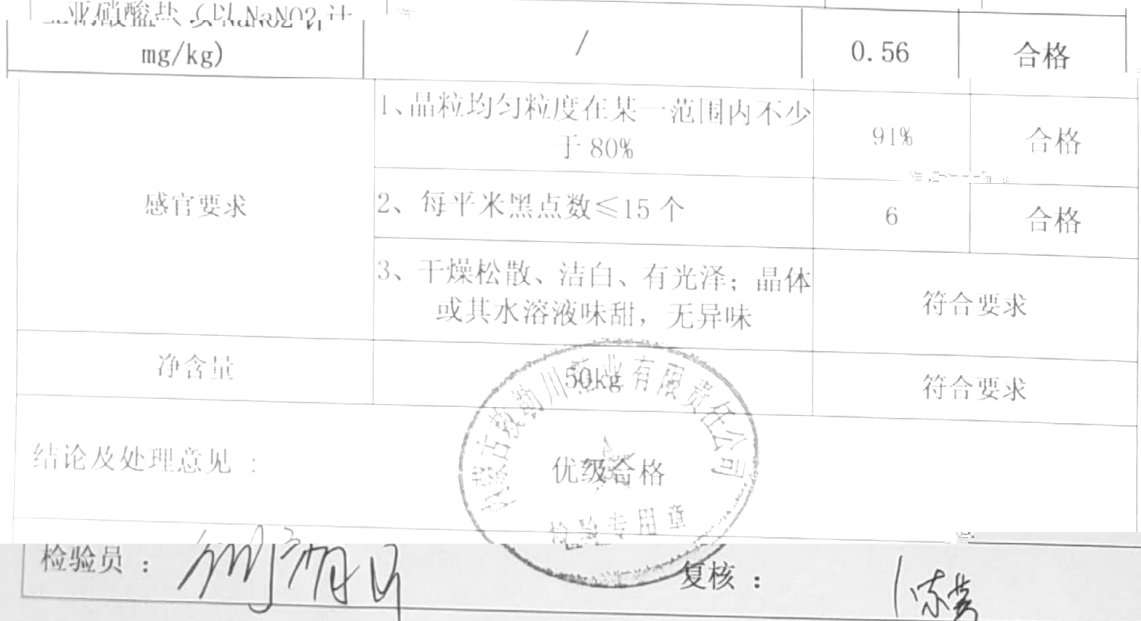 亚硝酸盐（以 NaNO2 计
mg/kg)
/
0.56
合格
感官要求
1、晶粒均匀粒度在某一范围内不少
于 80%
91%
合格
2、每平米黑点数≤15 个
6
合格
3、干燥松散、洁白、有光泽；晶体
或其水溶液味甜，无异味
符合要求
净含量
50kg
符合要求
结论及处理意见 ：
优级合格
业有限责任公司
检验专用章
检验员 ：
复核 ：